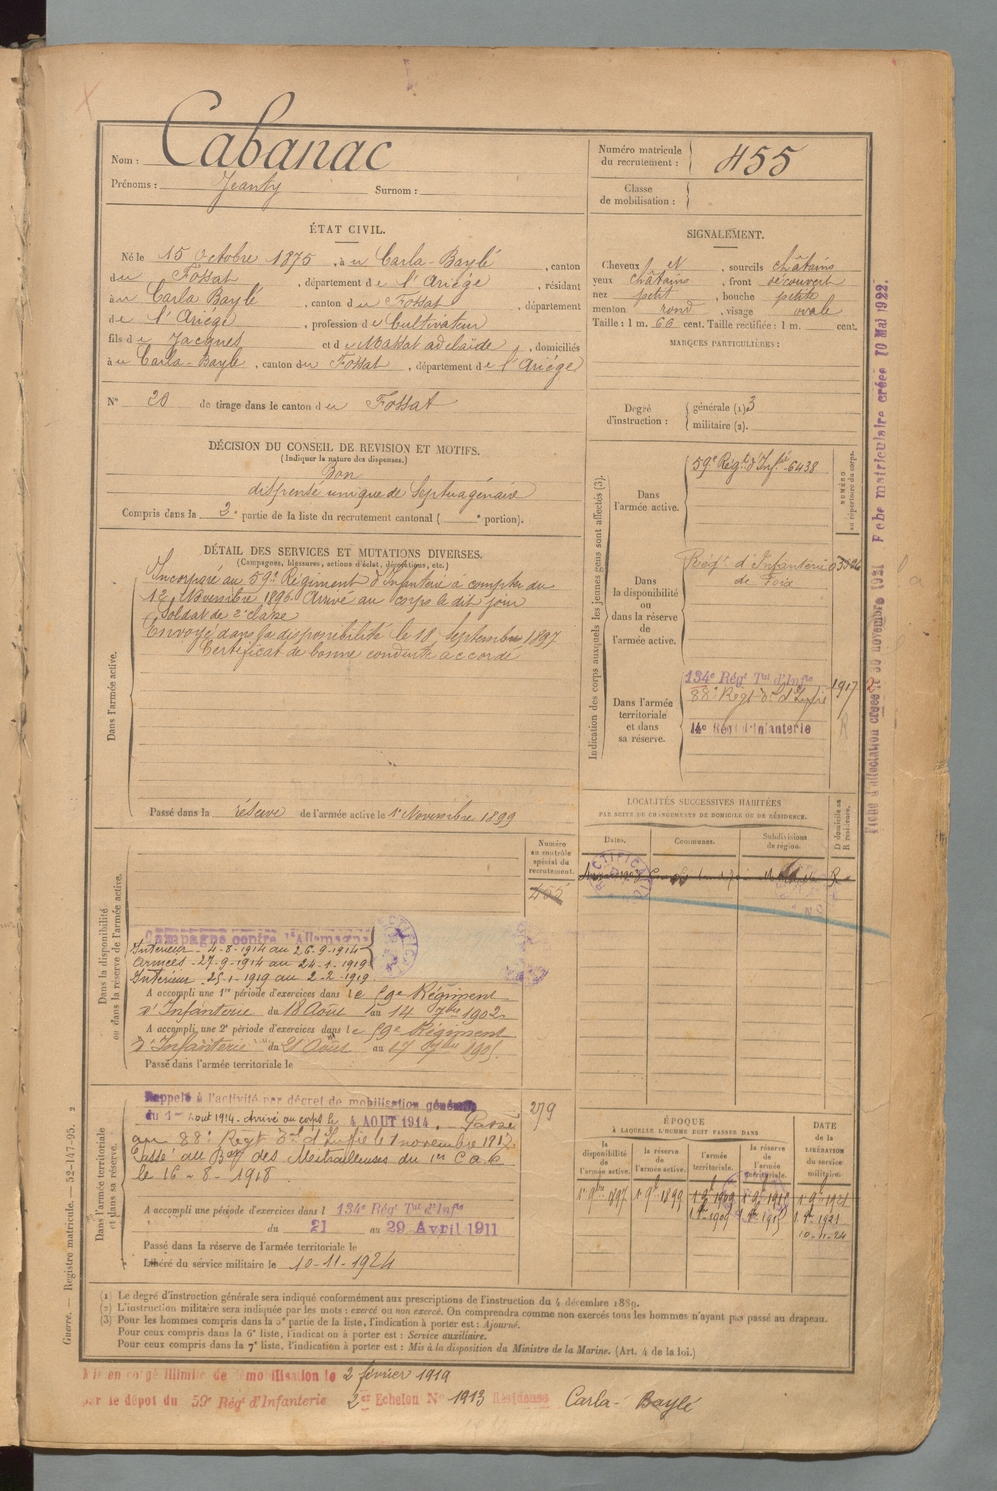 Nom : Cabanac
Prénoms : Jeanty Surnom :
Numéro matricule du recrutement : 455
Classe de mobilisation :
ÉTAT CIVIL.
Né le 15 Octobre 1875, à u Carla-Baylé, canton
d u Fossat, département d e l'Ariége, résidant
à u Carla Bayle, canton d u Fossat, département
d e l'Ariége, profession d e Cultivateur
fils d e Jacques et d e Massat adelaïde, domiciliés
à u Carla-Bayle, canton d u Fossat, département d e l'Ariége
N° 20 de tirage dans le canton d u Fossat
SIGNALEMENT.
Cheveux , sourcils châtains
yeux châtains, front découvert
nez petit, bouche petite
menton rond, visage ovale
Taille : 1 m. 66 cent. Taille rectifiée : 1 m. cent.
MARQUES PARTICULIÈRES :
Degré d'instruction : générale (1). 3
militaire (2).
DÉCISION DU CONSEIL DE REVISION ET MOTIFS.
(Indiquer la nature des dispenses.)
Bon
dispensé unique de Septuagénaire
Compris dans la 2e partie de la liste du recrutement cantonal ( e portion).
DÉTAIL DES SERVICES ET MUTATIONS DIVERSES.
(Campagnes, blessures, actions d'éclat, décorations, etc.)
Dans l'armée active.
Incorporé au 59e Régiment d'Infanterie à compter du
12 Novembre 1896. Arrivé au corps le dit jour
Soldat de 2e classe
Envoyé dans la disponibilité le 18 Septembre 1897
Certificat de bonne conduite accordé
Passé dans la réserve de l'armée active le 1er Novembre 1899
Indication des corps auxquels les jeunes gens sont affectés (3).
NUMÉRO au répertoire du corps.
Dans l'armée active.
59e Régt d'Infie 6438
Dans la disponibilité ou dans la réserve de l'armée active.
Régt d'Infanterie
de Foix
Dans l'armée territoriale et dans sa réserve.
134e Régt Tal d'Infie 1917
88e Régt d'Infie
14e Régt d'Infanterie
LOCALITÉS SUCCESSIVES HABITÉES
PAR SUITE DE CHANGEMENTS DE DOMICILE OU DE RÉSIDENCE.
Dates. Communes. Subdivisions de région. D domicile ou R résidence.
Numéro au contrôle spécial du recrutement.
455
Dans la disponibilité ou dans la réserve de l'armée active.
Campagne contre l'Allemagne
Intérieur - 4-8-1914 au 26-9-1914
Armées - 27-9-1914 au 24-1-1919
Intérieur - 25-1-1919 au 2-2-1919
A accompli une 1re période d'exercices dans l e 59e Régiment
d'Infanterie du 18 Août au 14 7bre 1902
A accompli une 2e période d'exercices dans l e 59e Régiment
d'Infanterie du 21 Août au 17 7bre 1905
Passé dans l'armée territoriale le
Dans l'armée territoriale et dans sa réserve.
Rappelé à l'activité par décret de mobilisation générale
du 1er Aout 1914 - arrivé au corps le 4 AOUT 1914. Passé
au 88e Regt d'Infie le 1 novembre 1917
Passé au Bon des Mitrailleuses du 1er C.a.c.
le 16-8-1918
279
A accompli une période d'exercices dans l 134e Régt Tal d'Infie
du 21 au 29 Avril 1911
Passé dans la réserve de l'armée territoriale le
Libéré du service militaire le 10-11-1924
ÉPOQUE
À LAQUELLE L'HOMME DOIT PASSER DANS
la disponibilité de l'armée active. la réserve de l'armée active. l'armée territoriale. la réserve de l'armée territoriale.
DATE de la LIBÉRATION du service militaire.
1er 9bre 1897 1er 9b 1899 1er 9b 1909 1er 9b 1915 1er 9b 1921
1er 8bre 1909 1er 8bre 1915 1er 8bre 1921
10-11-24
(1) Le degré d'instruction générale sera indiqué conformément aux prescriptions de l'instruction du 4 décembre 1889.
(2) L'instruction militaire sera indiquée par les mots : exercé ou non exercé. On comprendra comme non exercés tous les hommes n'ayant pas passé au drapeau.
(3) Pour les hommes compris dans la 5e partie de la liste, l'indication à porter est : Ajourné.
Pour ceux compris dans la 6e liste, l'indication à porter est : Service auxiliaire.
Pour ceux compris dans la 7e liste, l'indication à porter est : Mis à la disposition du Ministre de la Marine. (Art. 4 de la loi.)
Mis en congé illimité de démobilisation le 2 février 1919
par le dépot du 59e Régt d'Infanterie 2er Echelon No 1913 Résidence Carla-Baylé
Guerre. — Registre matricule. — 52-147-95. 2
Fiche d'affectation créée le 30 novembre 1921 Fiche matriculaire créée 10 Mai 1922.